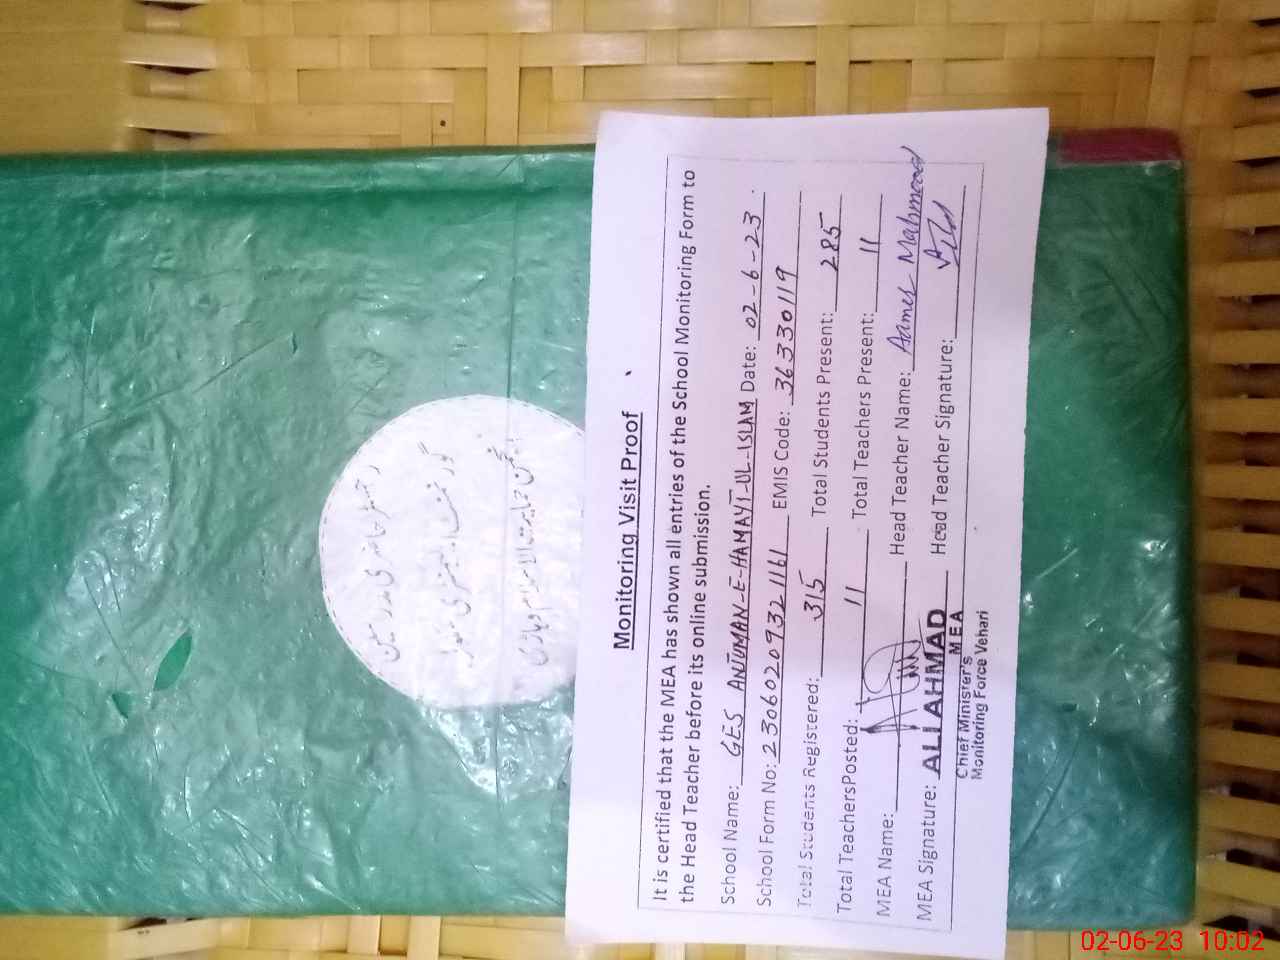 Monitoring Visit Proof
It is certified that the MEA has shown all entries of the School Monitoring Form to
the Head Teacher before its online submission.
School Name: GES ANJUMAN-E-HAMAYT-UL-ISLAM Date: 02-6-23
School Form No: 23060209321161 EMIS Code: 36330119
Total Students Registered: 315 Total Students Present: 285
Total TeachersPosted: 11 Total Teachers Present: 11
MEA Name: Head Teacher Name: Aamer Mahmood
MEA Signature: ALI AHMAD Head Teacher Signature:
MEA
Chief Minister's
Monitoring Force Vehari
رجسٹر حاضری مدرسین
گورنمنٹ ایلیمنٹری سکول
انجمن حمایت الاسلام وہاڑی
02-06-23 10:02